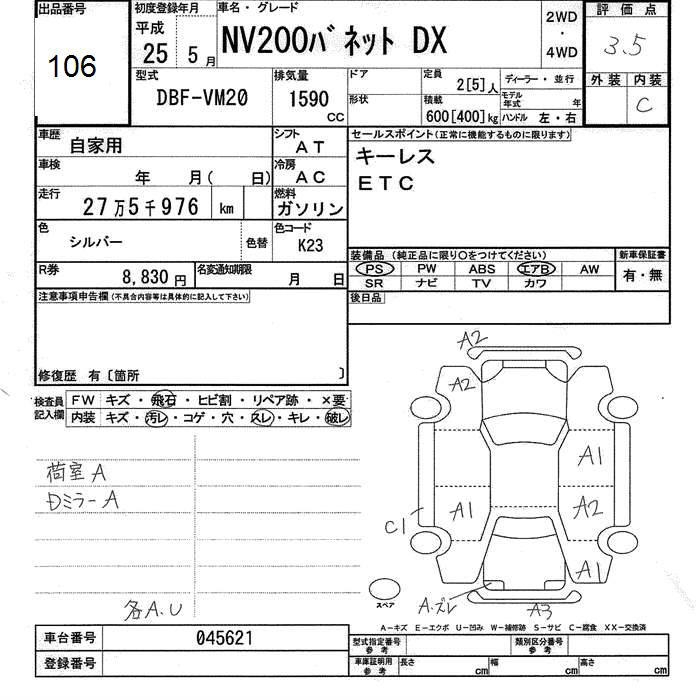 出品番号
106
初度登録年月
平成
25 5月
車名・グレード
NV200バネット DX
2WD
・
4WD
評価点
3.5
外装 内装
C
型式
DBF-VM20
排気量
1590
CC
ドア
形状
定員
2[5]人
積載
600[400]kg
ディーラー・並行
モデル年式 年
ハンドル 左・右
車歴
自家用
シフト
AT
車検
年 月( 日)
冷房
AC
走行
27万5千976 km
燃料
ガソリン
色
シルバー
色替
色コード
K23
R券
8,830円
名変通知期限
月 日
セールスポイント(正常に機能するものに限ります)
キーレス
ETC
装備品 (純正品に限り○をつけてください)
PS PW ABS エアB AW
SR ナビ TV カワ
新車保証書
有・無
後日品
注意事項申告欄(不具合内容等は具体的に記入して下さい)
修復歴 有〔箇所 〕
検査員記入欄
FW キズ・飛石・ヒビ割・リペア跡・×要
内装 キズ・汚レ・コゲ・穴・スレ・キレ・破レ
荷室A
Dミラー A
各A.U
A2
A2
A1
A1
A2
C1
A1
A.ズレ
A3
スペア
A−キズ E−エクボ U−凹み W−補修跡 S−サビ C−腐食 XX−交換済
車台番号 045621
登録番号
型式指定番号
参考
類別区分番号
参考
車庫証明用
参考
長さ cm 幅 cm 高さ cm